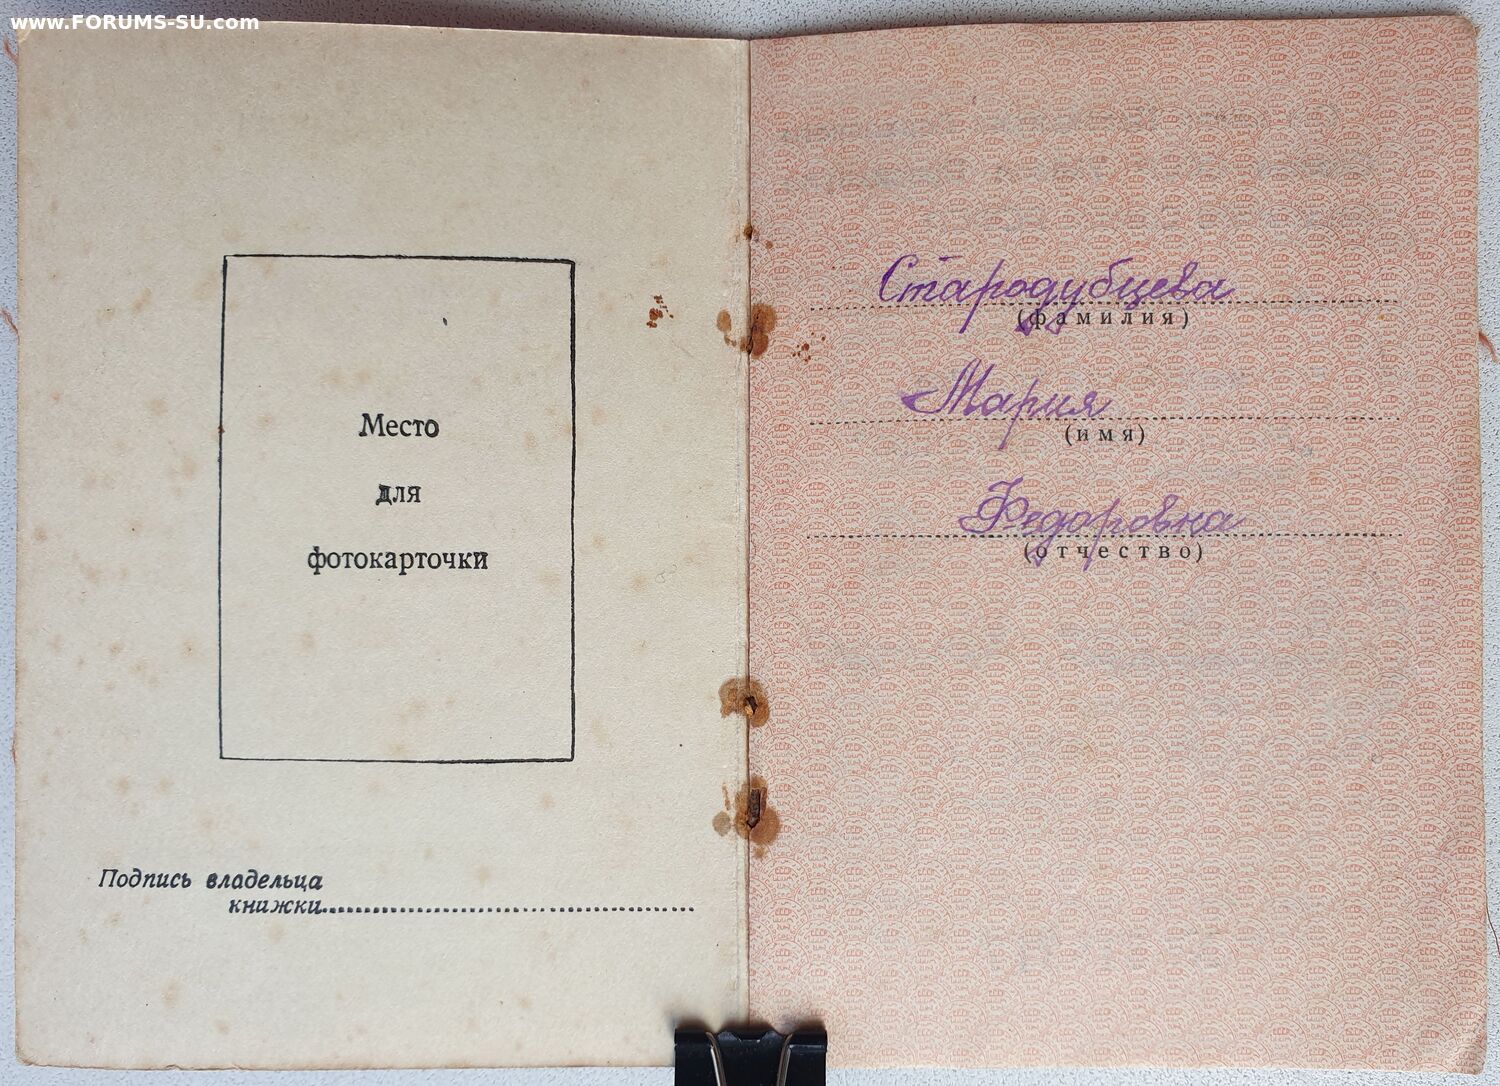 www.FORUMS-SU.com
Место
для
фотокарточки
Подпись владельца
книжки
Стародубцева
(фамилия)
Мария
(имя)
Федоровна
(отчество)